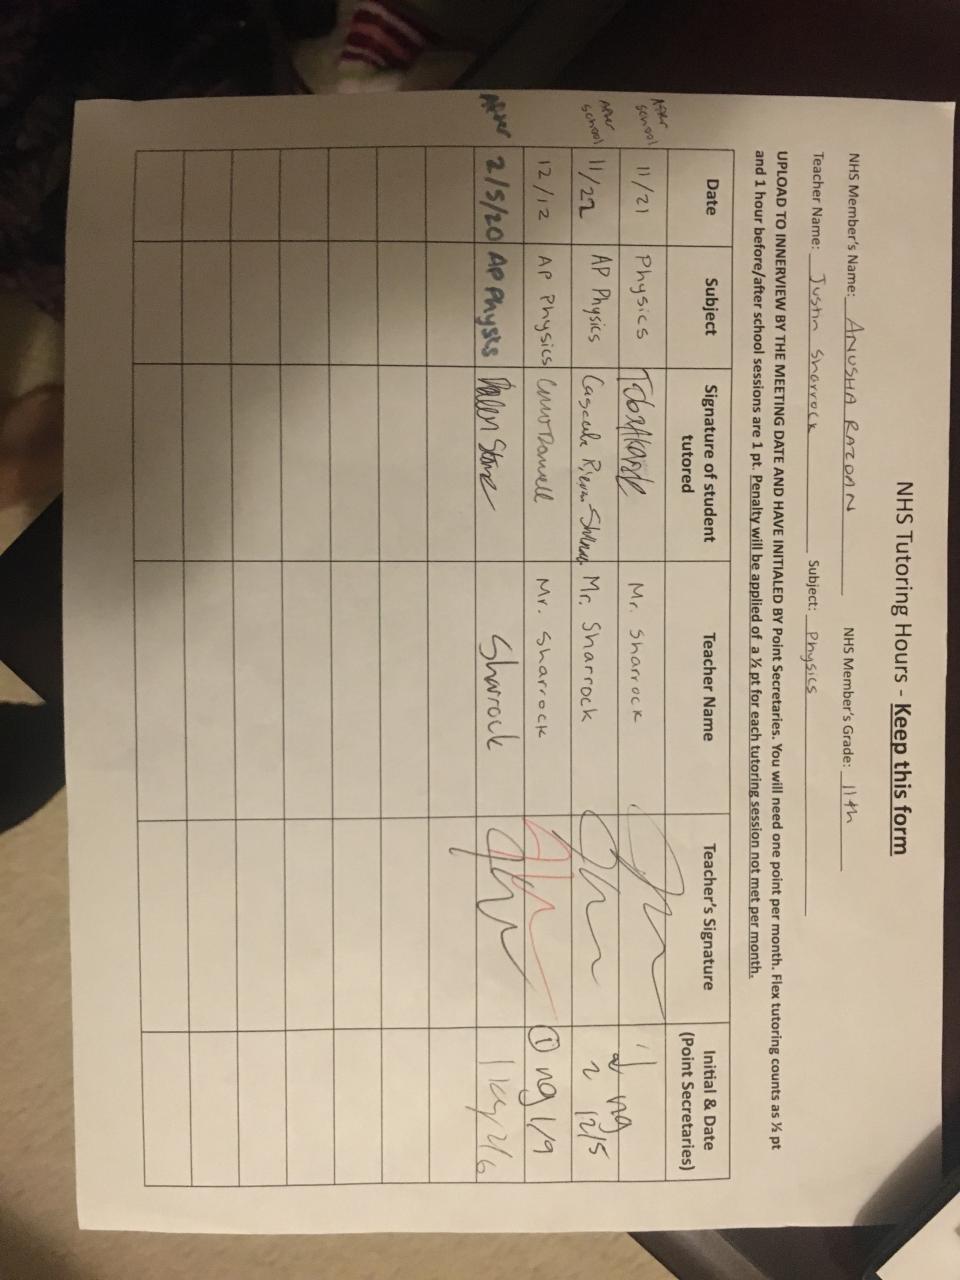 NHS Tutoring Hours - Keep this form
NHS Member's Name: ANUSHA RAZDAN NHS Member's Grade: 11th
Teacher Name: Justin Sharrock Subject: Physics
UPLOAD TO INNERVIEW BY THE MEETING DATE AND HAVE INITIALED BY Point Secretaries. You will need one point per month. Flex tutoring counts as ½ pt
and 1 hour before/after school sessions are 1 pt. Penalty will be applied of a ½ pt for each tutoring session not met per month.
Date Subject Signature of student tutored Teacher Name Teacher's Signature Initial & Date (Point Secretaries)
After school 11/21 Physics Mr. Sharrock 1 ng
After school 11/22 AP Physics Mr. Sharrock 2 12/5
12/12 AP Physics Mr. Sharrock 1 ng 1/9
After 2/5/20 AP Physics Sharrock 1 2/6